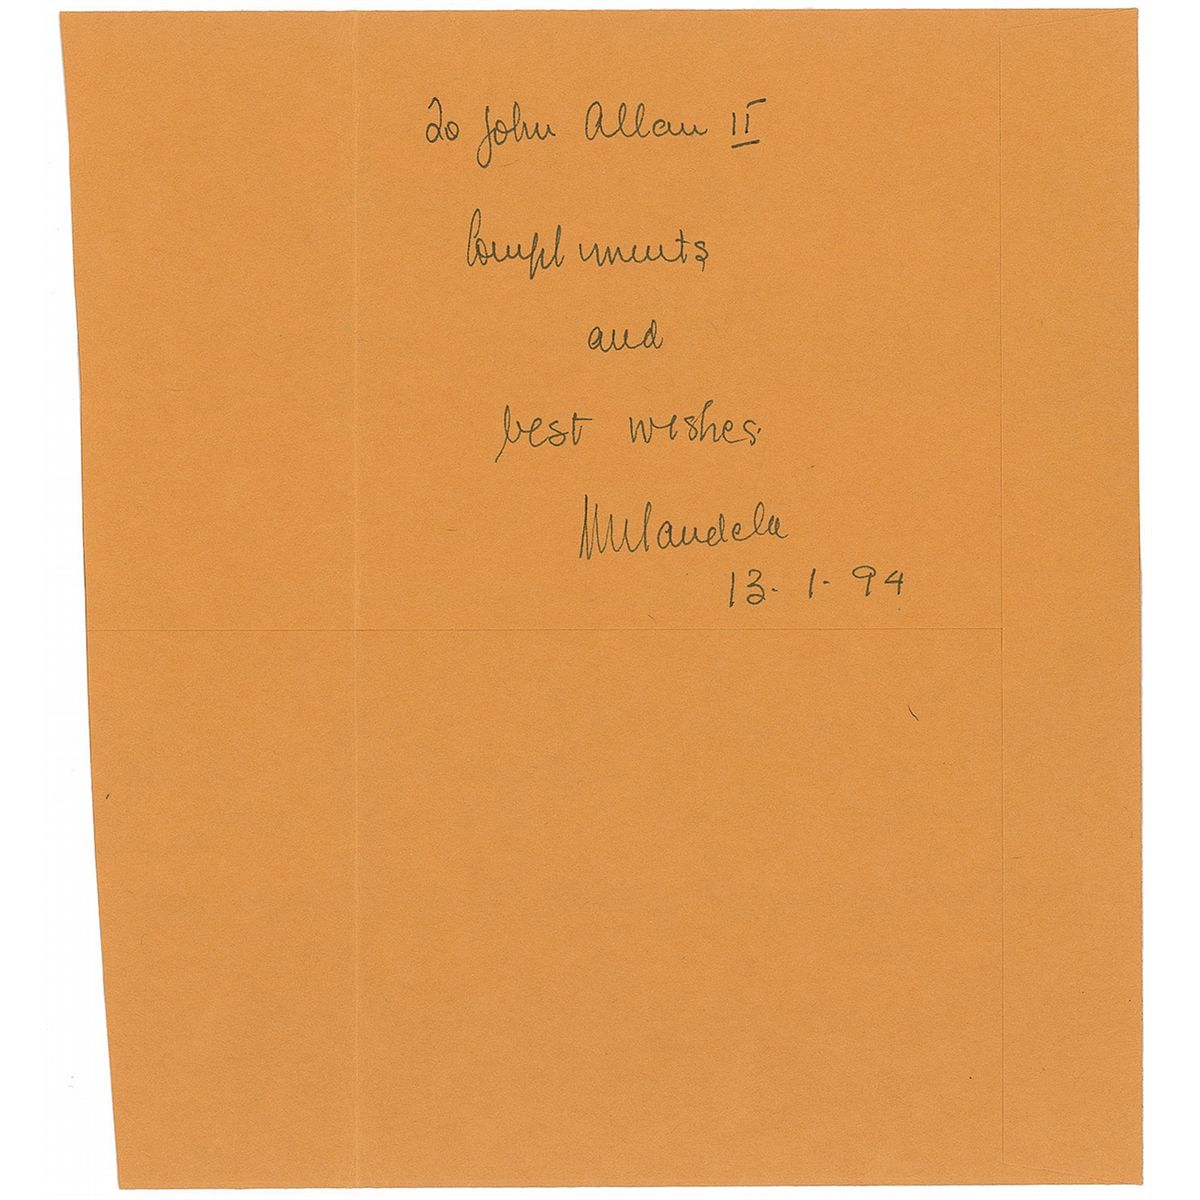 To John Allan II
Compliments
and
best wishes.
NMandela
13.1.94